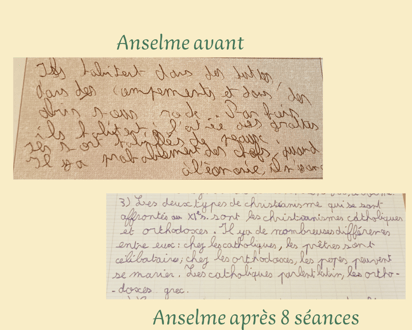 Anselme avant
Ils habitent dans des huttes,
dans des campements et dans des
abris sous roche. Par fois
ils habitent l'entrée des grottes
Ils sont habillés de peaux.
Il y a probablement des chefs, quand
à l'économie, ils
3) Les deux types de christianisme qui se sont
affrontés au XIe s. sont les christianismes catholiques
et orthodoxes. Il y a de nombreuses différences
entre eux : chez les catholiques, les prêtres sont
célibataires ; chez les orthodoxes, les popes peuvent
se marier. Les catholiques parlent latin, les ortho-
-doxes grec.
Anselme après 8 séances